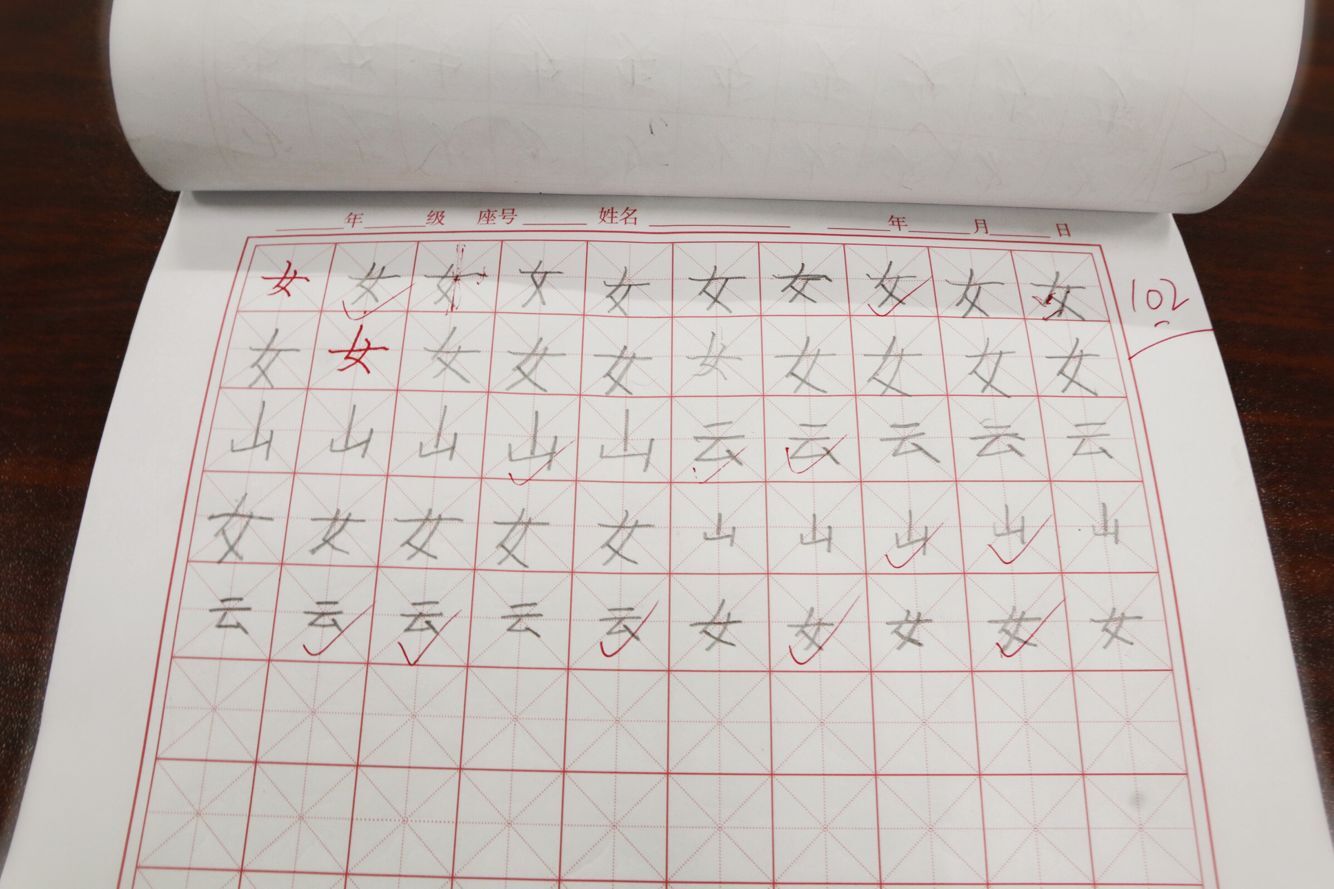 年 级 座号 姓名 年 月 日
女 女 女 女 女 女 女 女 女 女 102
女 女 女 女 女 女 女 女 女 女
山 山 山 山 山 云 云 云 云 云
女 女 女 女 女 山 山 山 山 山
云 云 云 云 云 女 女 女 女 女